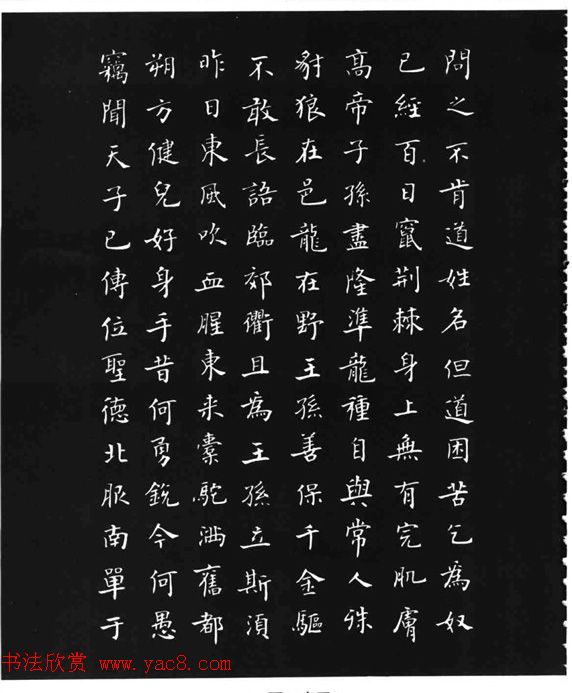 問之不肯道姓名但道困苦乞為奴
已經百日竄荆棘身上無有完肌膚
高帝子孫盡隆準龍種自與常人殊
豺狼在邑龍在野王孫善保千金驅
不敢長語臨郊衢且為王孫立斯須
昨日東風吹血腥東来橐駝满舊都
朔方健兒好身手昔何勇銳今何愚
竊聞天子已傳位聖德北服南單于
书法欣赏 www.yac8.com